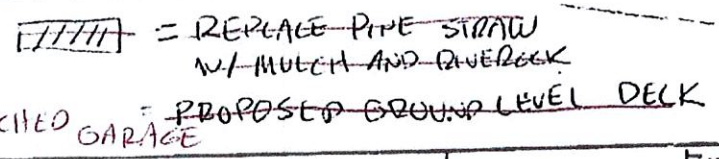 = REPLACE PINE STRAW
W/ MULCH AND RIVEROCK
= PROPOSED GROUND LEVEL DECK
CHED GARAGE